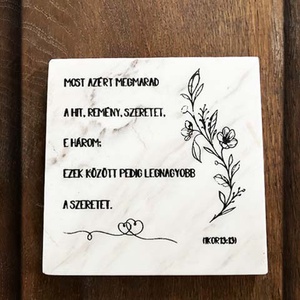 MOST AZÉRT MEGMARAD
A HIT, REMÉNY, SZERETET,
E HÁROM;
EZEK KÖZÖTT PEDIG LEGNAGYOBB
A SZERETET.
(1KOR13:13)